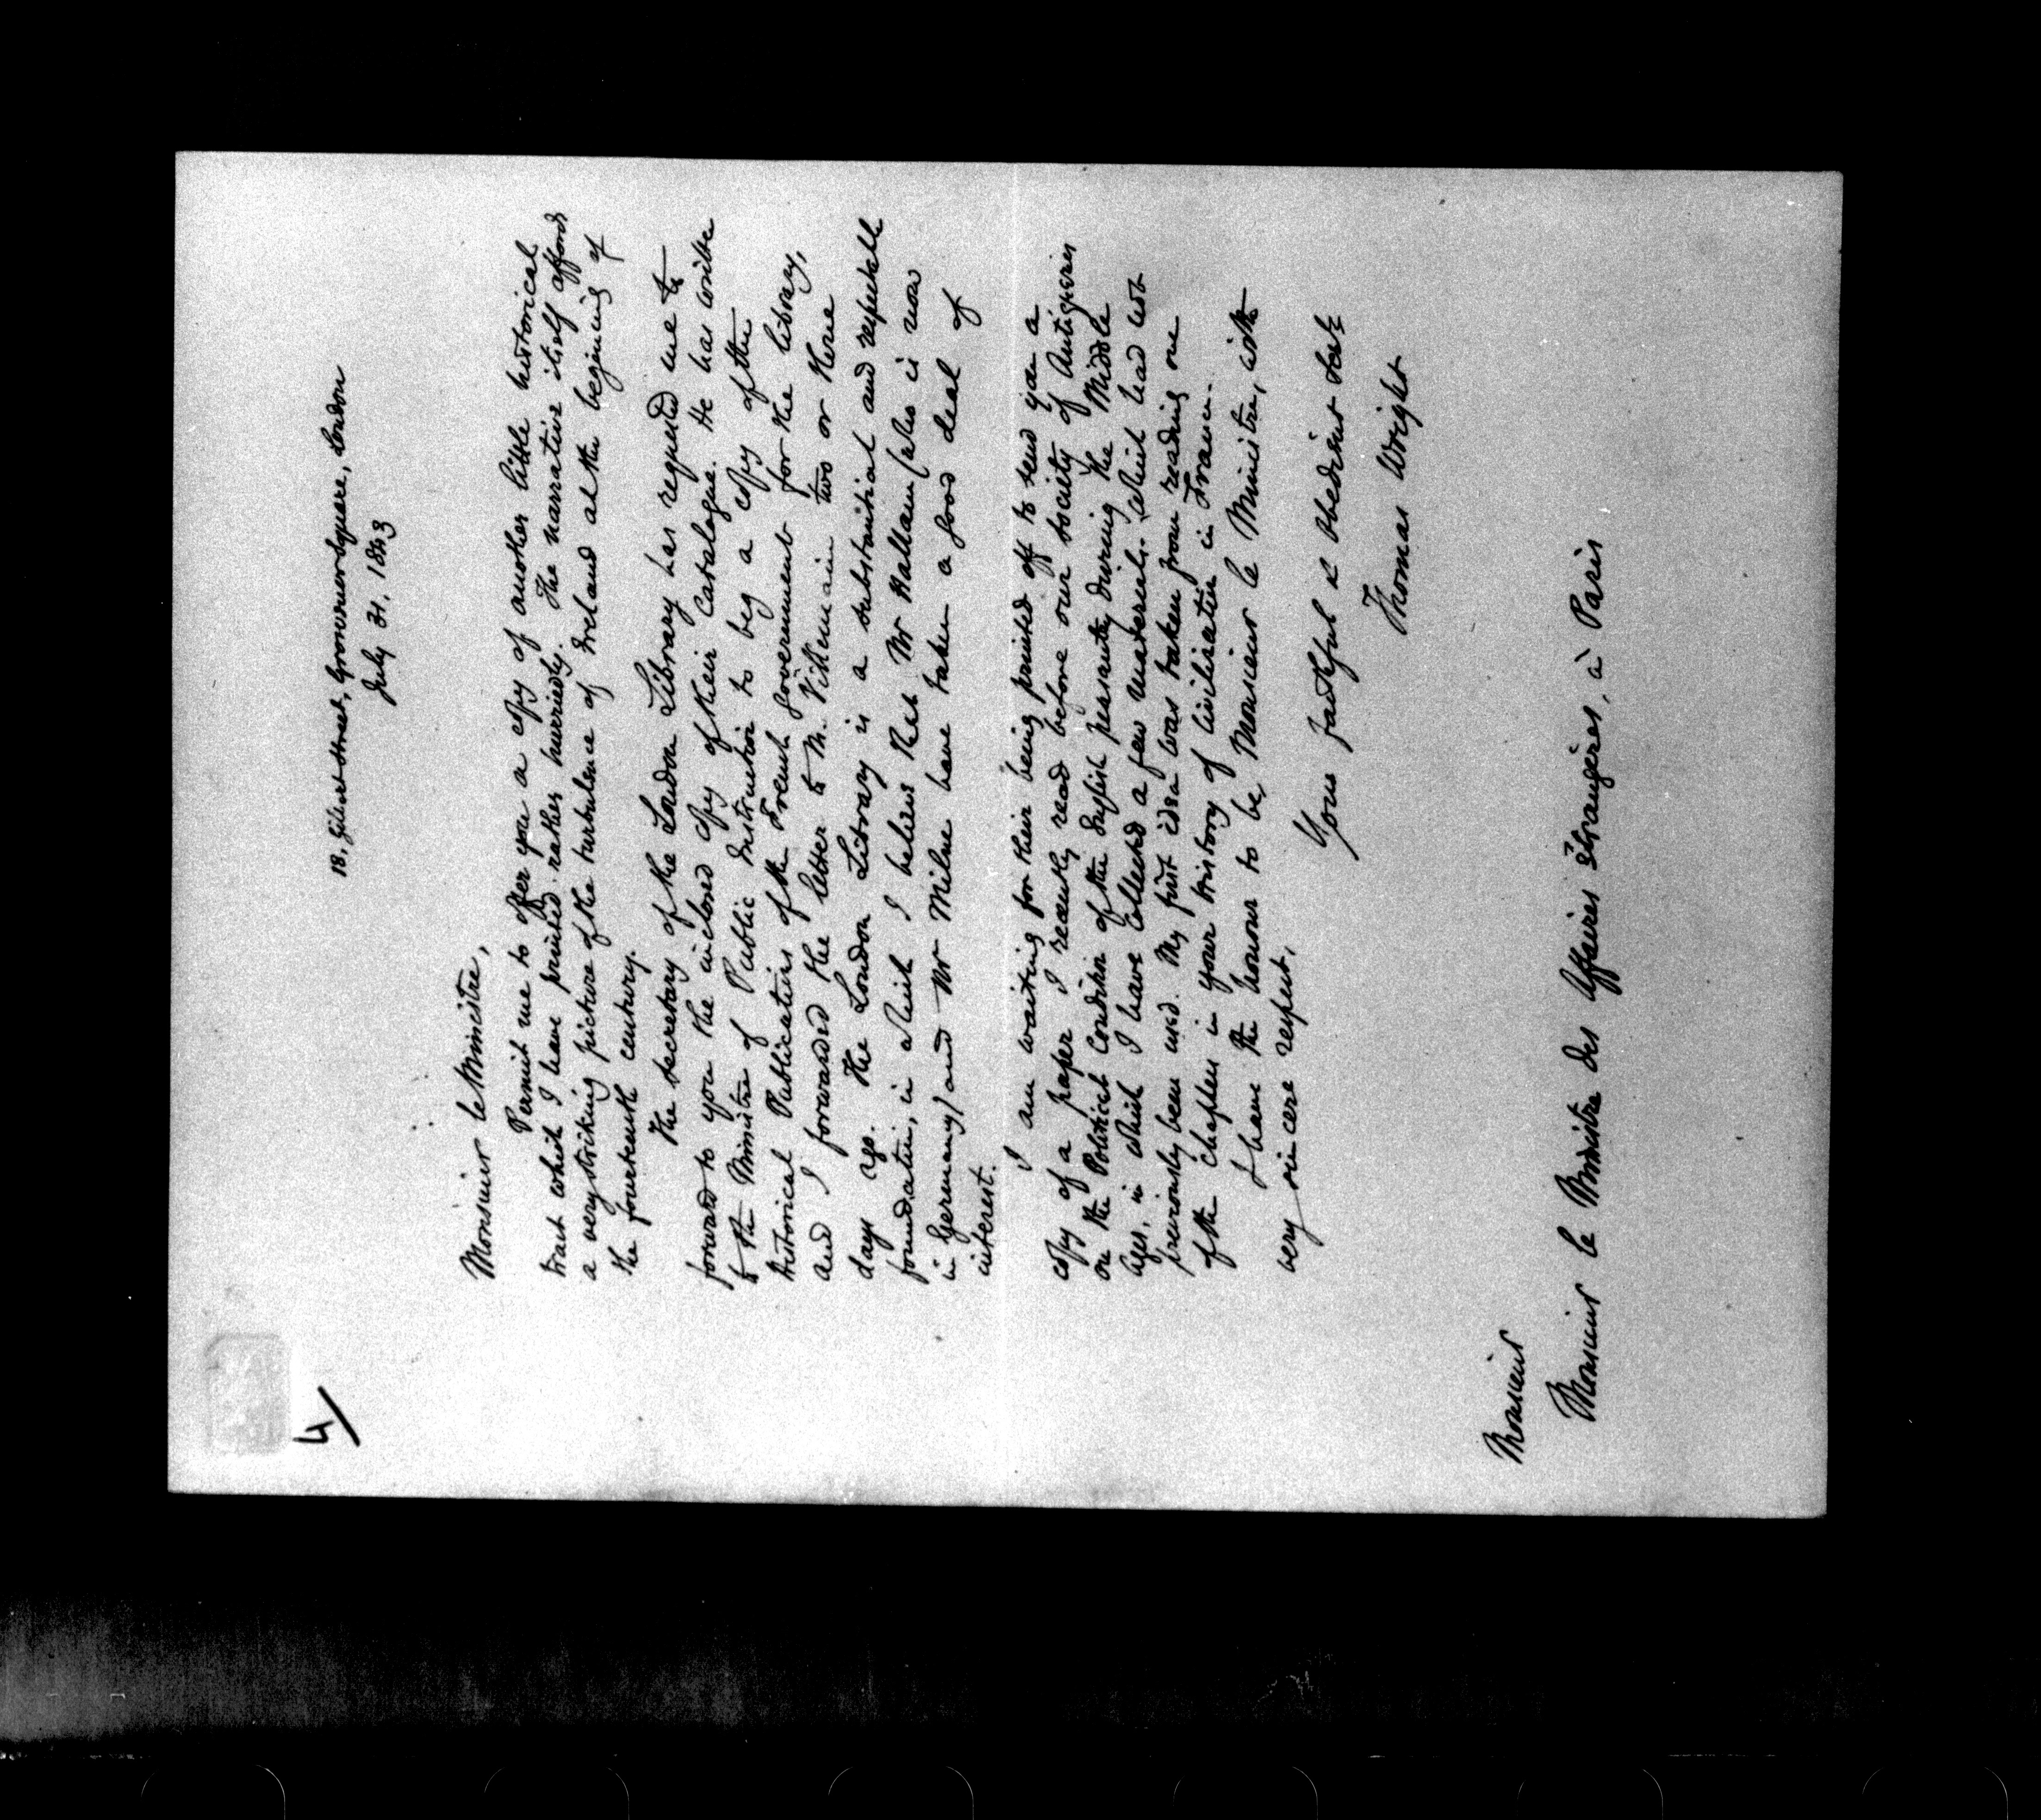 4/
18, Gilbert Street, Grosvenor Square, London
July 31. 1843
Monsieur le Ministre,
Permit me to offer you a copy of another little historical
tract which I have printed rather hurriedly. The narrative itself affords
a very striking picture of the turbulence of Ireland at the begining of
the fourteenth century.
The Secretary of the London Library has requested me to
forward to you the inclosed copy of their Catalogue. He has write
to the Ministre of Public Instruction to beg a copy of the
Historical Publications of the French Government for the library,
and I forwarded the letter to M. Villemain two or three
days ago. The London Library is a substantial and respectable
foundation, in which I believe that Mr Hallam (who is now
in Germany) and Mr Milne have taken a good deal of
interest.
I am waiting for their being printed off to send you a
copy of a paper I recently read before our Society of Antiquaries
on the Political Condition of the English peasantry during the Middle
Ages, in which I have collected a few materials which had not
previously been used. My first idea was taken from reading one
of the chapters in your history of Civilisation in France.
I have the honour to be, Monsieur le Ministre, with
very sincere respect,
Your faithful & obedient Servt
Thomas Wright
Monsieur
Monsieur le Ministre des Affaires Étrangères, à Paris